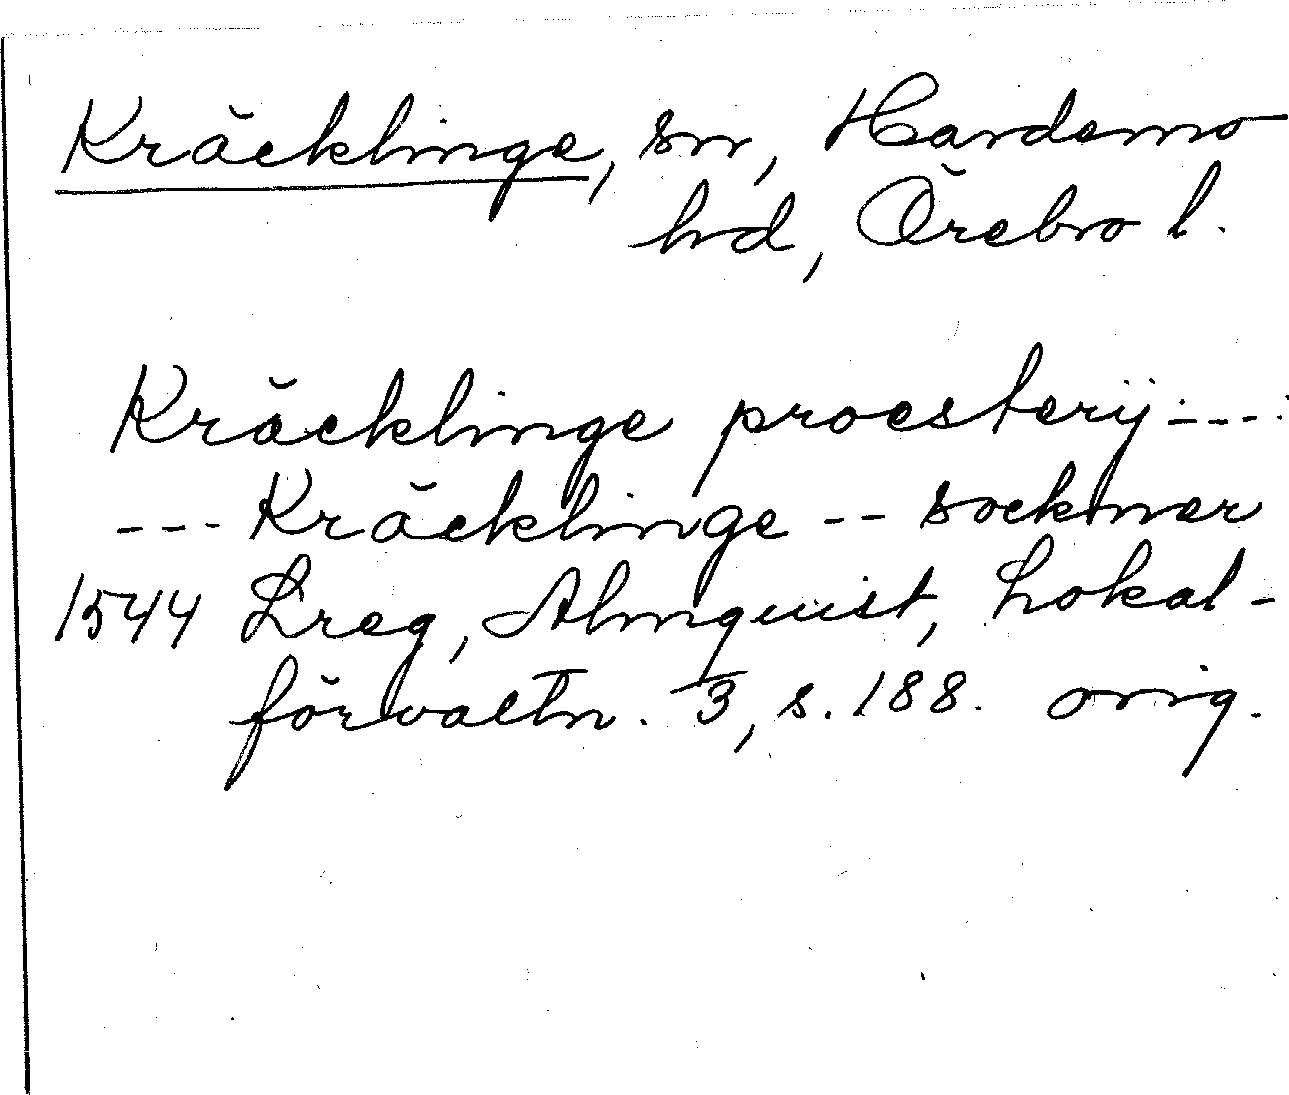 Kräcklinge, sn, Hardemo
hd, Örebro l.
Kräcklinge proesterÿ ----
--- Kräcklinge -- socknar
1544 Lreg, Almquist, Lokal-
förvaltn. 3, s. 188. orig.